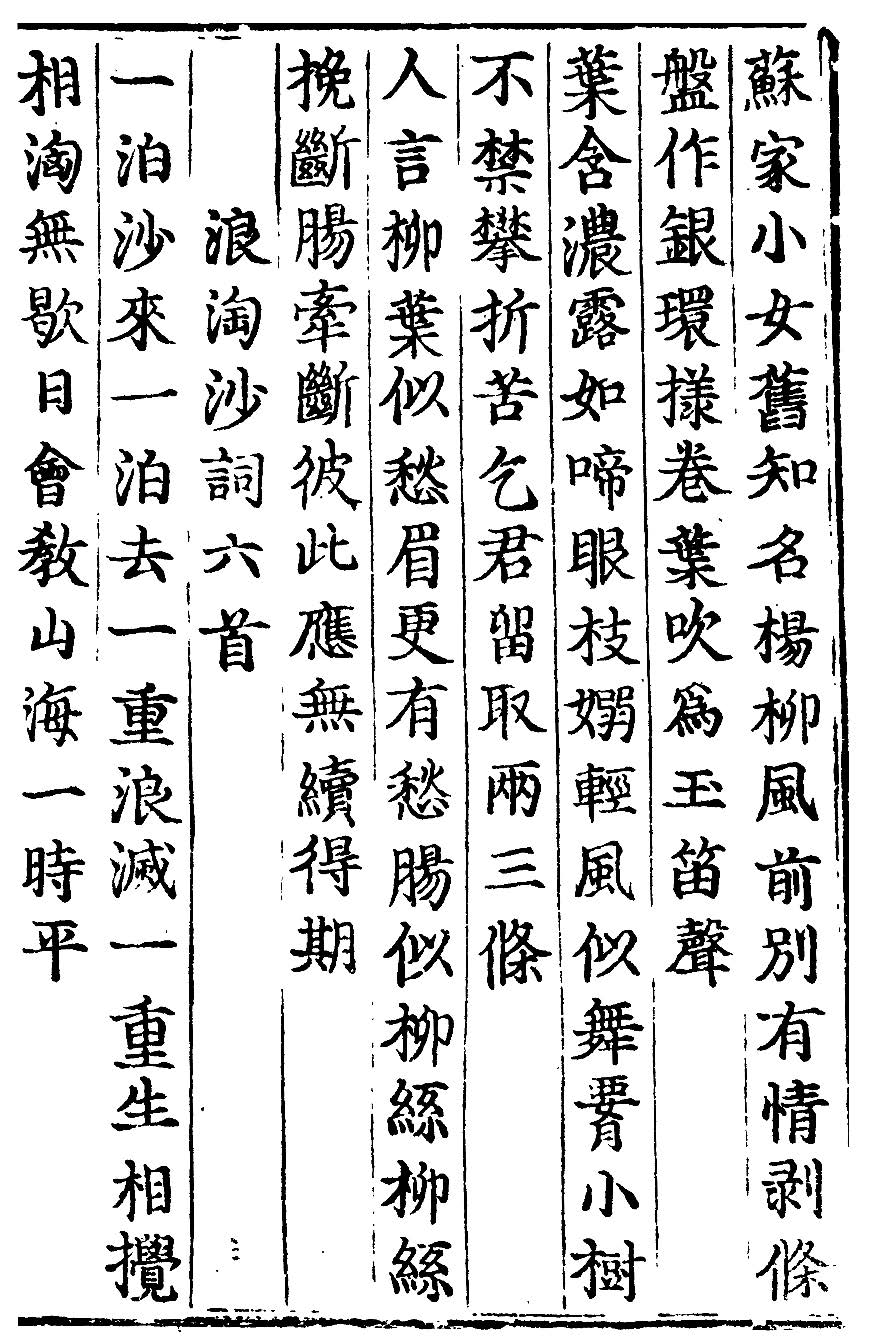 蘇家小女舊知名楊柳風前別有情剥條
盤作銀環㨾卷葉吹爲玉笛聲
葉含濃露如啼眼枝嫋輕風似舞𦝫小樹
不禁攀折苦乞君留取兩三條
人言柳葉似愁眉更有愁腸似柳絲柳絲
挽斷腸牽斷彼此應無續得期
浪淘沙詞六首
一泊沙來一泊去一重浪滅一重生相攪
相淘無歇日會教山海一時平